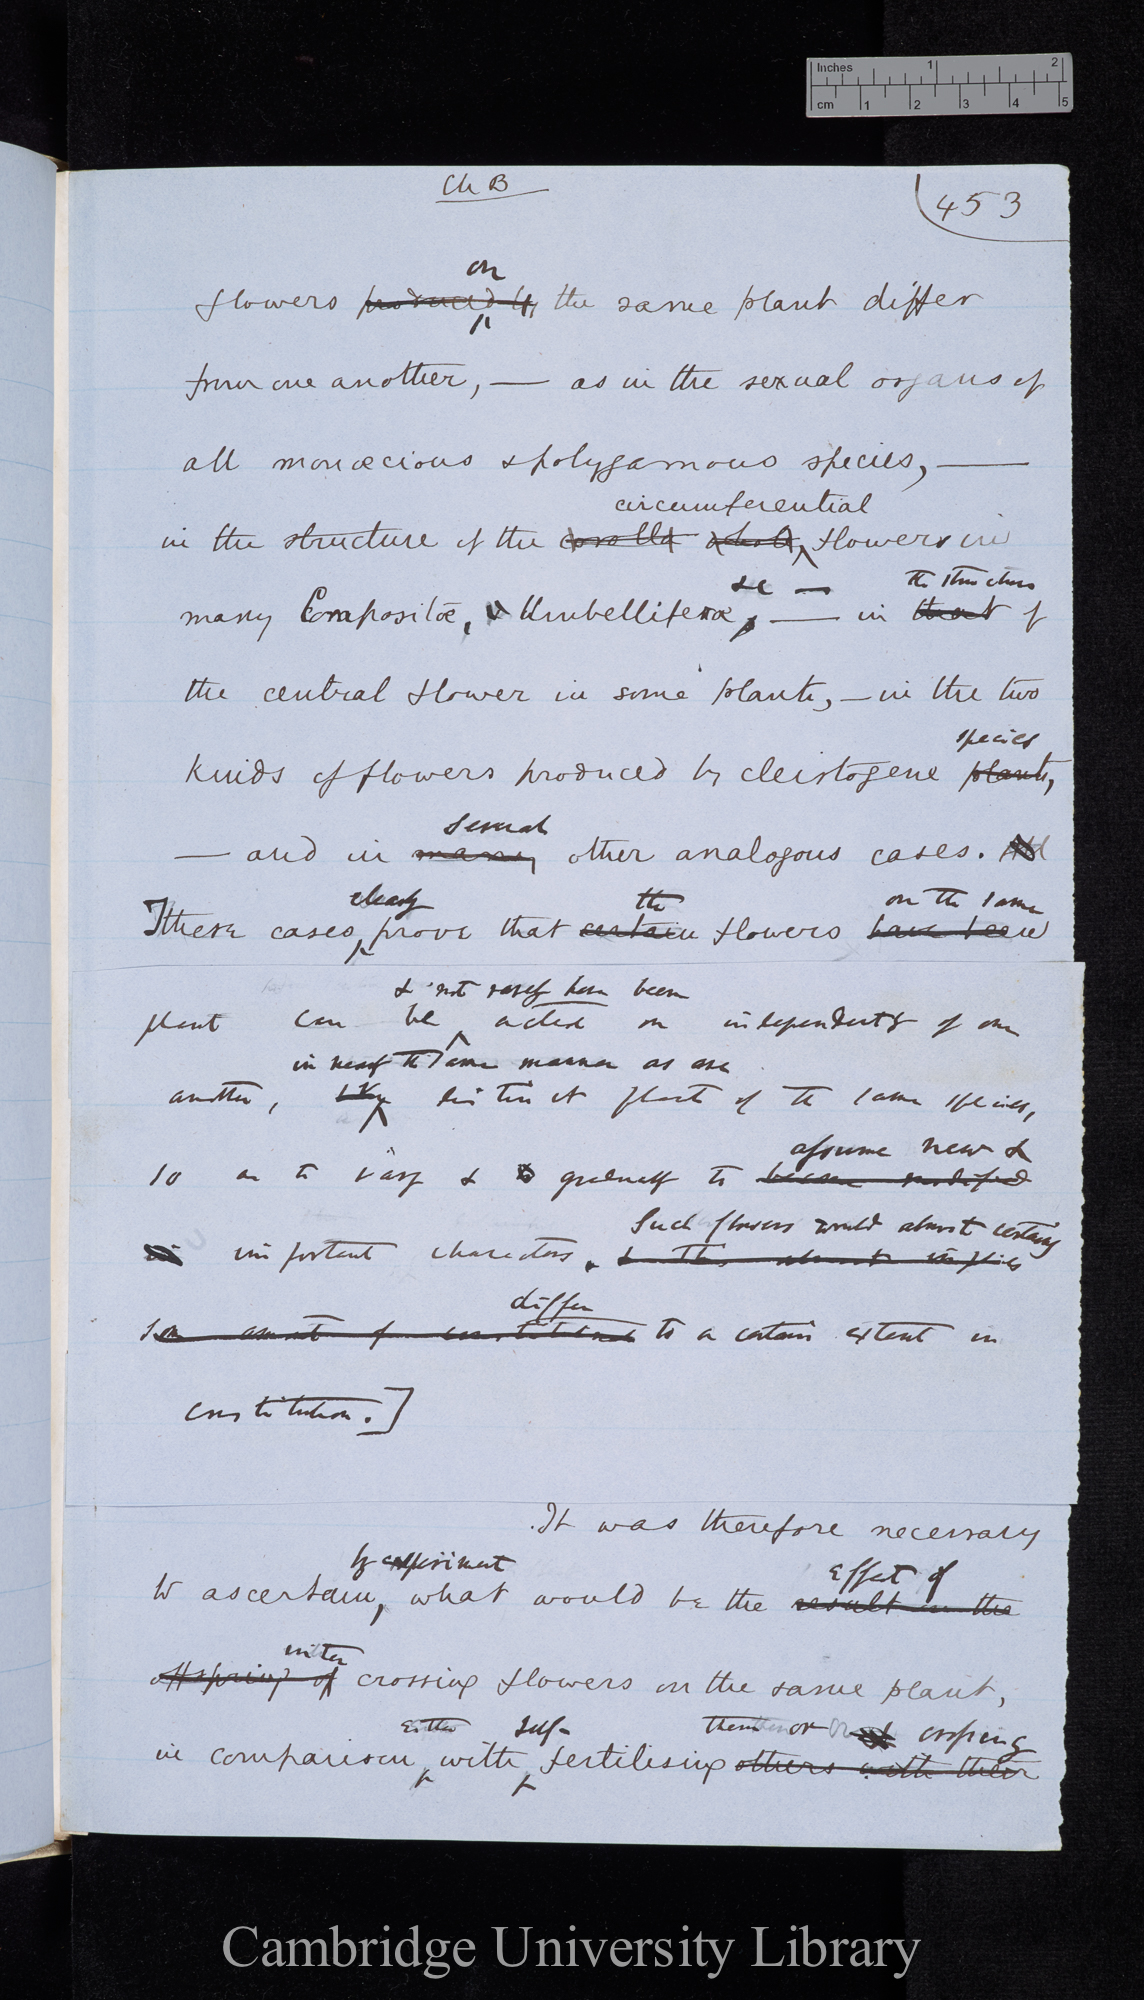 Inches 1 2
cm 1 2 3 4 5
Ch B
453
on
flowers produced by the same plant differ
from one another, — as in the sexual organs of
all monœcious & polygamous species, —
circumferential
in the structure of the corolla flowers in
&c — the structure
many Compositæ, & Umbelliferæ, — in that of
the central flower in some plants, — in the two
species
kinds of flowers produced by cleistogene plants,
several
— and in many other analogous cases.
clearly the on the same
These cases, prove that certain flowers have been
& not rarely have been
plant can be acted on independently of one
in nearly the same manner as are
another, like distinct plants of the same species,
assume new &
so as to vary & gradually to become modified
Such flowers would almost certainly
in important characters. & this almost implies
differ
some amount of constitutional to a certain extent in
constitution.]
It was therefore necessary
by experiment effect of
to ascertain, what would be the result on the
inter
offspring of crossing flowers on the same plant,
either self- them or crossing
in comparison, with fertilising others with their
Cambridge University Library